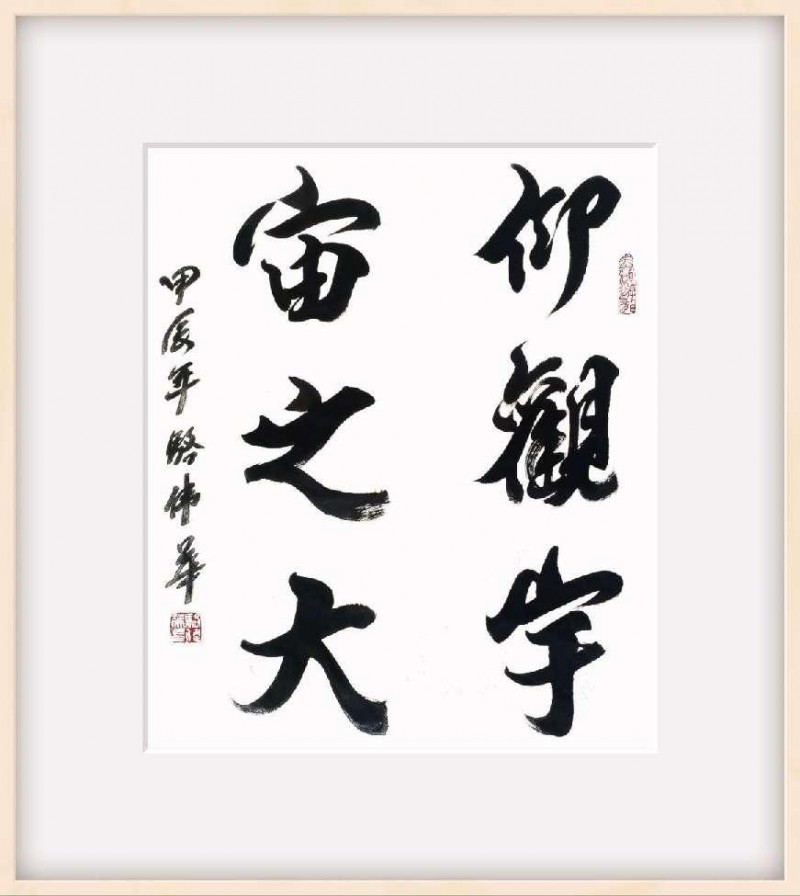 仰觀宇
宙之大
甲辰年駱伟華